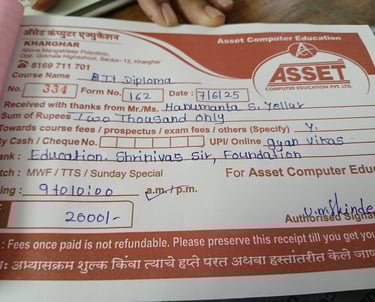 अ‍ॅसेट कंप्युटर एज्युकेशन
Asset Computer Education
KHARGHAR
Above Mangaldeep Polyclinic,
Opp. Gokhale Highschool, Sector- 12, Kharghar
8169 711 701
ASSET
COMPUTER EDUCATION PVT. LTD.
Course Name Diploma
No. 334 Form No. 162 Date : 7/6/25
Received with thanks from Mr./Ms. Hanumanta S. Yellur
Sum of Rupees Two Thousand only
Towards course fees / prospectus / exam fees / others (Specify)
By Cash / Cheque No. UPI / Online gyan vikas
ank : Education. Shrinivas Sir, Foundation
tch : MWF / TTS / Sunday Special For Asset Computer Edu
ing : a.m. / p.m.
2000/-
Authorised Signat
: Fees once paid is not refundable. Please preserve this receipt till you get you
अभ्यासक्रम शुल्क किंवा त्याचे हप्ते परत अथवा हस्तांतरीत केले जाण